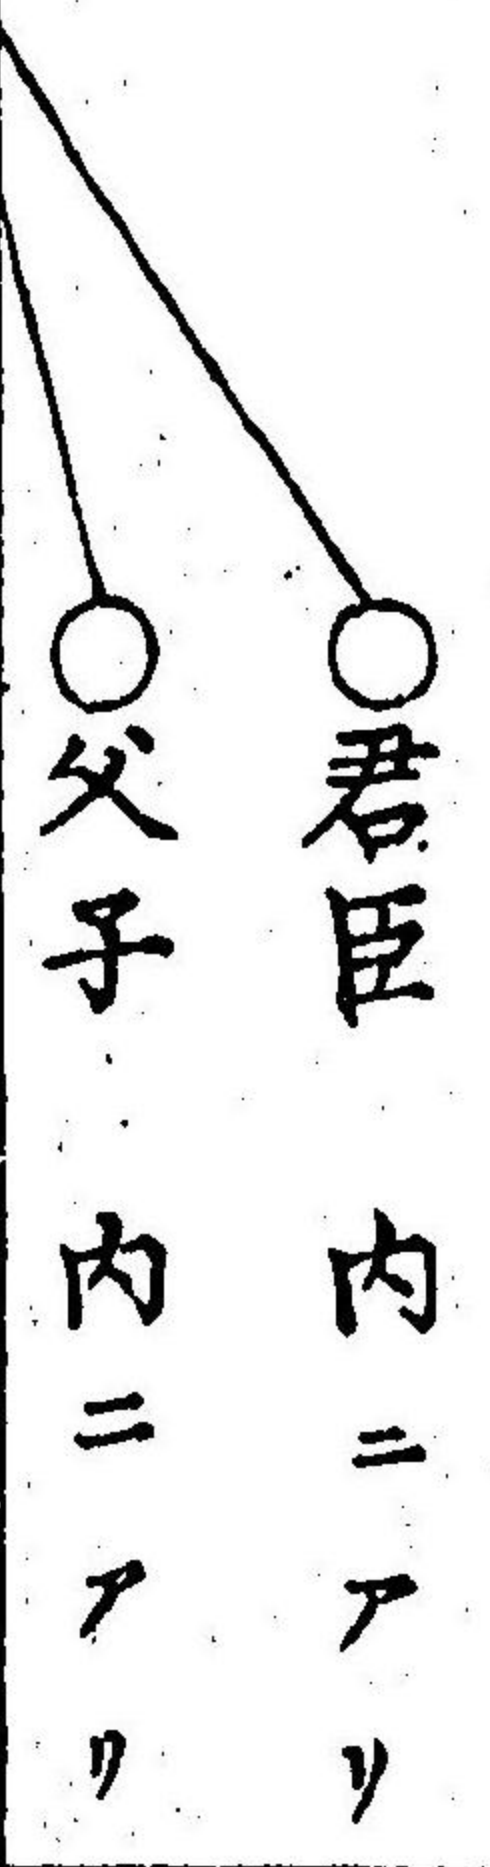 君臣 内ニアリ
父子 内ニアリ